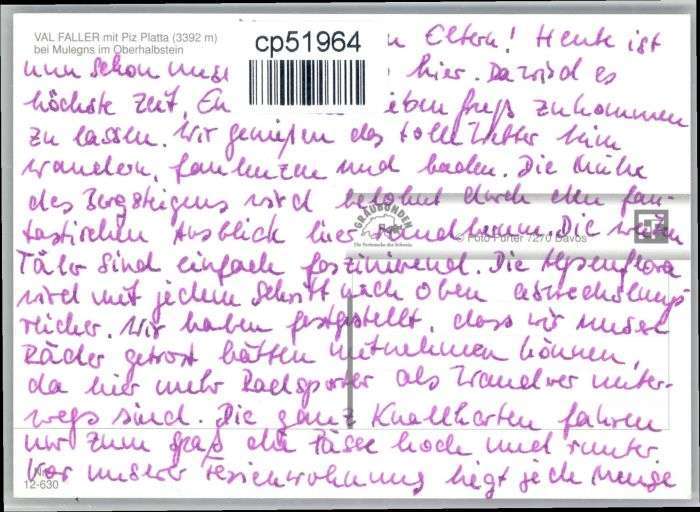 VAL FALLER mit Piz Platta (3392 m)
bei Mulegns im Oberhalbstein
cp51964
n Eltern! Heute ist
nun schon unse hier. Da wird es
höchste Zeit, Eu ieben Gruß zukommen
zu lassen. Wir genießen das tolle Wetter beim
wandern, faulenzen und baden. Die Mühe
des Bergsteigens wird belohnt durch den fan-
tastischen Ausblick hier rundherum. Die weiten
GRAUBÜNDEN
Die Ferienecke der Schweiz.
© Foto Furter 7270 Davos
Täler sind einfach faszinierend. Die Alpenflora
wird mit jedem Schritt nach oben abwechslungs-
reicher. Wir haben festgestellt, dass wir unsere
Räder getrost hätten mitnehmen können,
da hier mehr Radsportler als Wanderer unter-
wegs sind. Die ganz Knallharten fahren
nur zum Spaß die Pässe hoch und runter.
Vor unserer Ferienwohnung liegt jede Menge
12-630